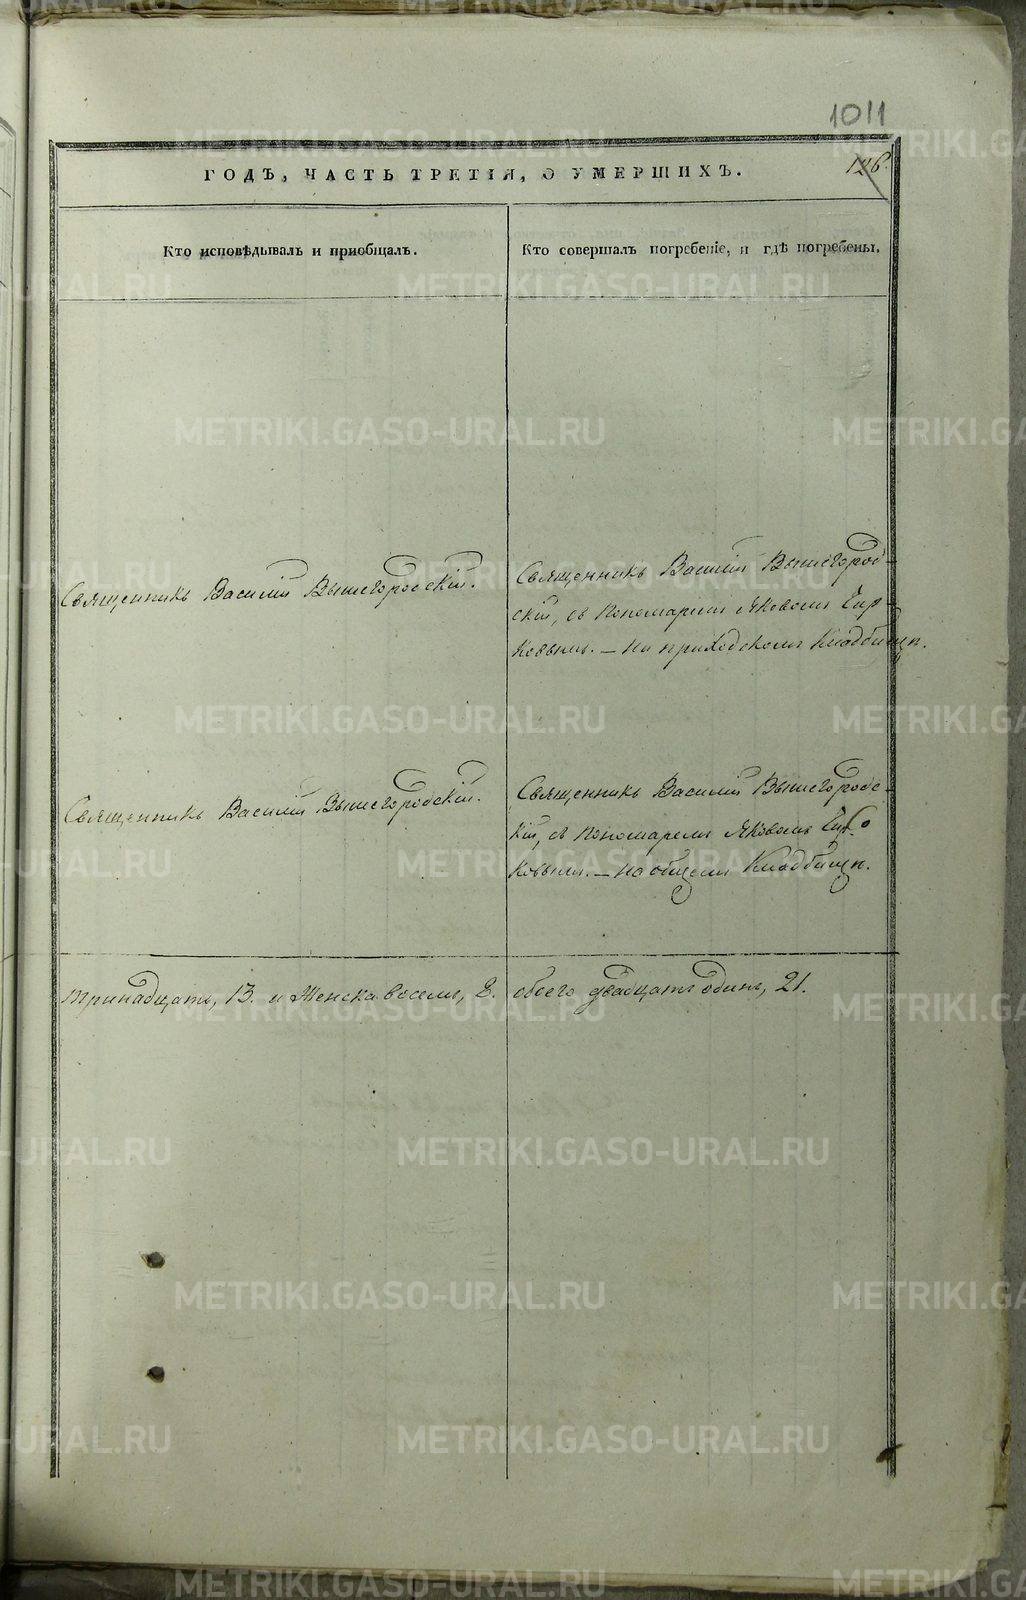 1011
126.
ГОДЪ, ЧАСТЬ ТРЕТІЯ, О УМЕРШИХЪ.
Кто исповѣдывалъ и приобщалъ.
Кто совершалъ погребеніе, и гдѣ погребены.
Священникъ Василій Вышегородскій.
Священникъ Василій Вышегород-
скій, съ Пономаремъ Яковомъ Чир-
ковымъ. — на приходскомъ Кладбищѣ.
Священникъ Василій Вышегородскій.
Священникъ Василій Вышегородс-
кій, съ Пономаремъ Яковомъ Чир-
ковымъ. — на общемъ Кладбищѣ.
тринадцать, 13. и Женска восемь, 8.
обоего двадцать одинъ, 21.
METRIKI.GASO-URAL.RU